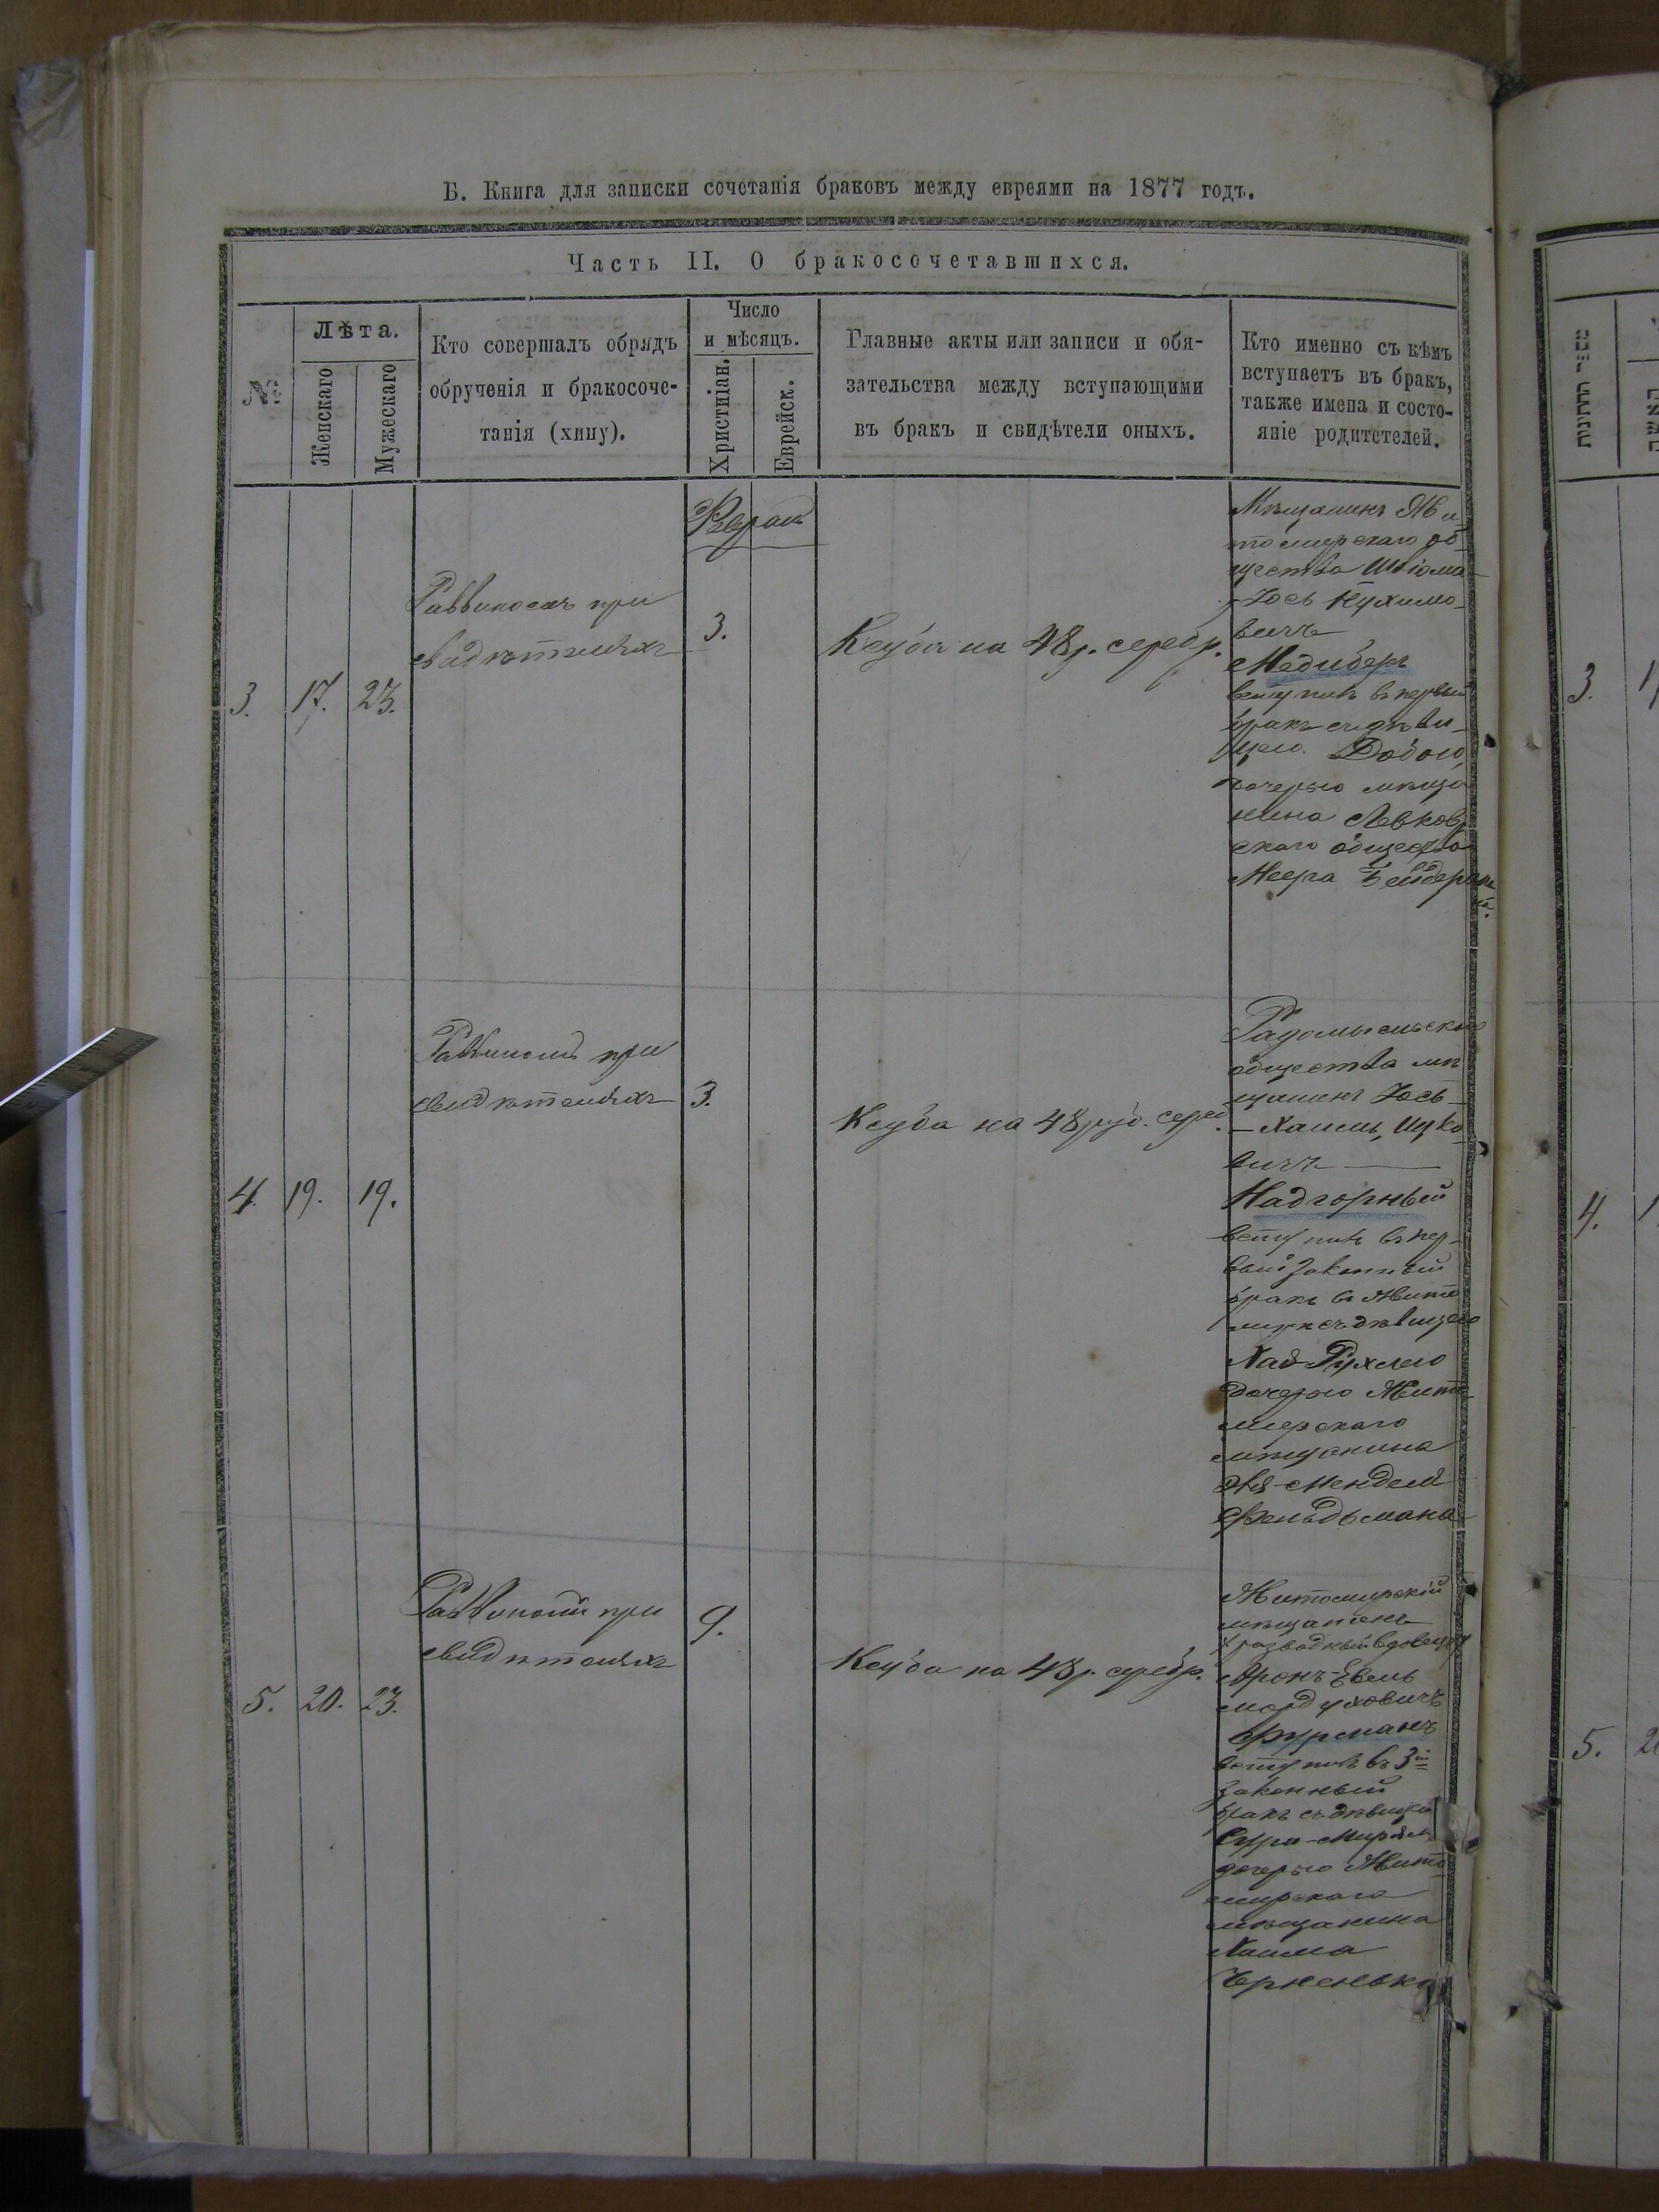 Б. Книга для записки сочетанія браковъ между евреями на 1877 годъ.
Часть II. О бракосочетавшихся.
№
Лѣта.
Женскаго
Мужескаго
Кто совершалъ обрядъ
обрученія и бракосоче-
танія (хипу).
Число
и мѣсяцъ.
Христіан.
Еврейск.
Главные акты или записи и обя-
зательства между вступающими
въ бракъ и свидѣтели оныхъ.
Кто именно съ кѣмъ
вступаетъ въ бракъ,
также имена и состо-
яніе родитетелей.
Феврал
3.
17.
23.
Раввиномъ при
свидѣтеляхъ
3.
Кеуба на 48 р. серебр.
Мѣщанинъ Жи-
томирскаго об-
щества Шлiома-
-Іось Нухимо-
вичъ
Медиберъ
вступилъ въ первый
бракъ съ дѣви-
цею Добою,
дочерью мѣща
нина Левков
скаго общества
Меера
4.
19.
19.
Раввиномъ при
свидѣтеляхъ
3.
Кеуба на 48 руб. сереб.
Радомысльскаго
общества мѣ
щанинъ Іось-
-Хаимъ, Ицко-
вичъ
Надгорный
вступилъ въ пер-
вый законный
бракъ въ Жито
мирѣ съ дѣвицею
Хая-Рухлею
дочерью Жито-
мирскаго
мѣщанина
Менделя
Фельдсмана
5.
20.
23.
Раввиномъ при
свидѣтеляхъ
9.
Кеуба на 48 р. серебр.
Житомирскій
мѣщанинъ
разводный вдовецъ
Аронъ-Звель
Мордуховичъ
Фурманъ
вступилъ въ 3й
законный
бракъ съ дѣвицею
Сура-Мирьям
дочерью Жито
мирскаго
мѣщанина
Хаима
מספר החתונות
האשה
3.
4.
5.